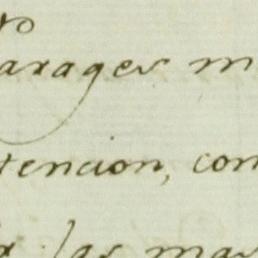 arages m
tencion, con
las mas